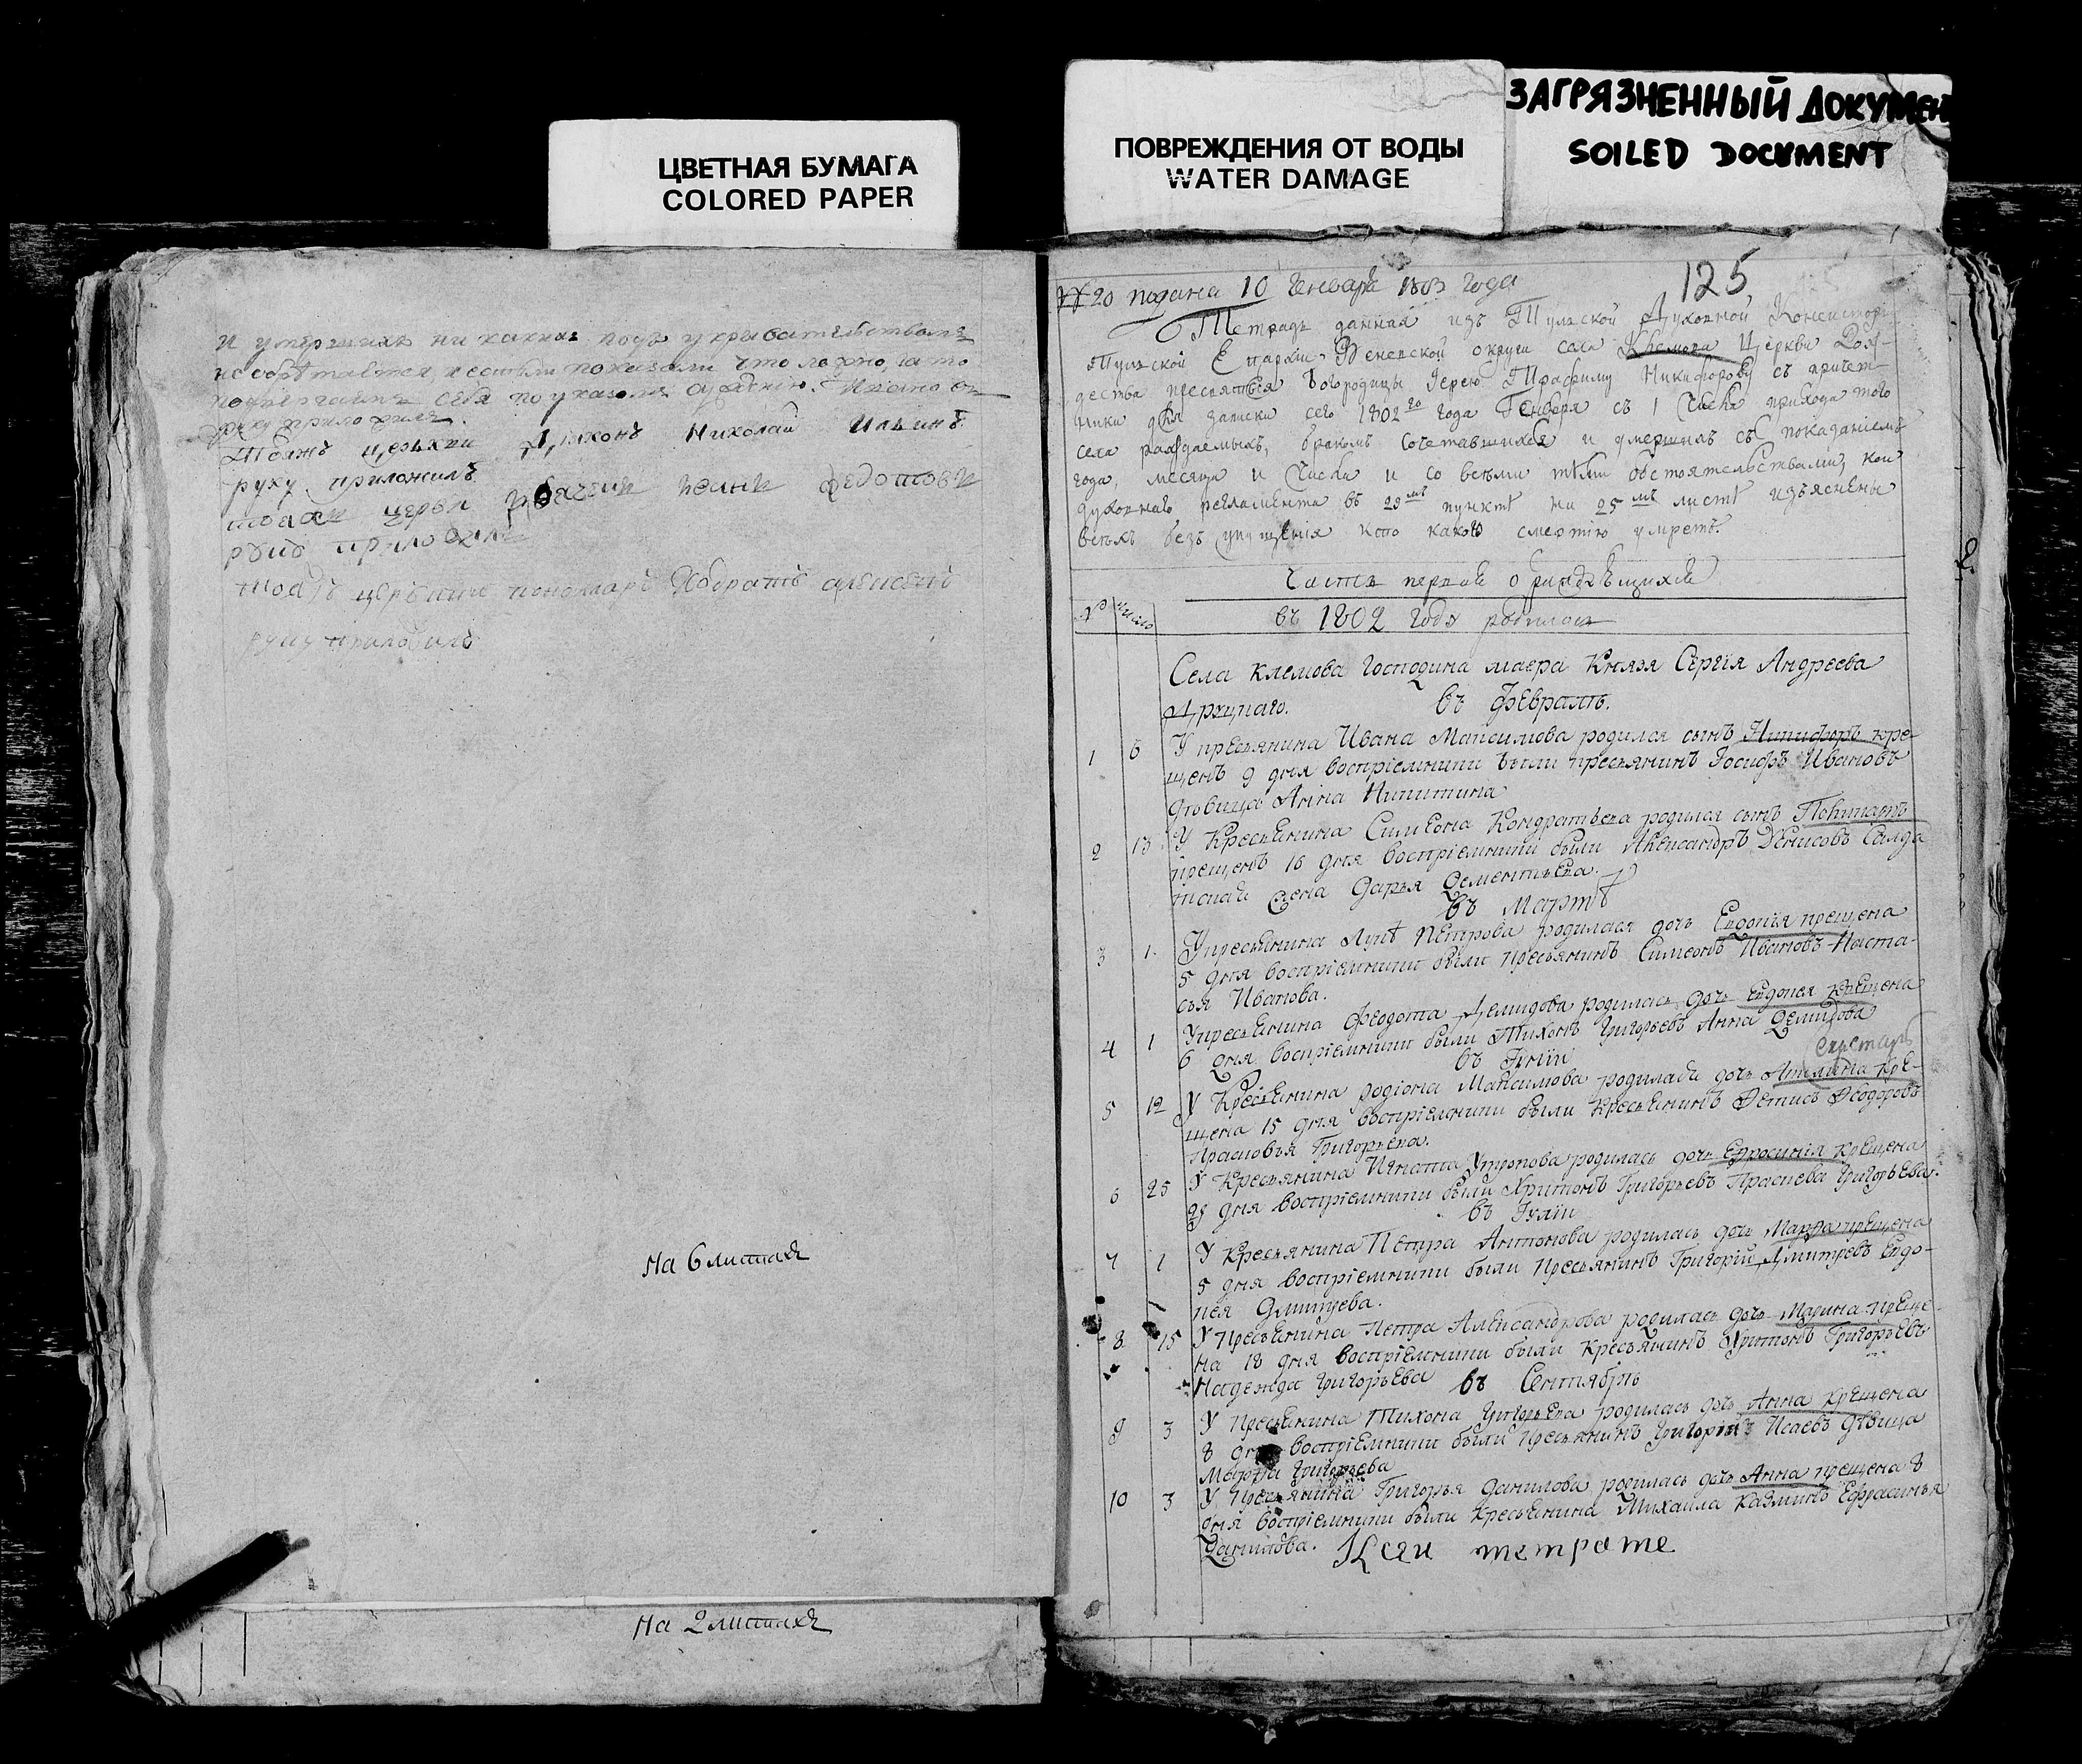 ЦВЕТНАЯ БУМАГА
COLORED PAPER
ПОВРЕЖДЕНИЯ ОТ ВОДЫ
WATER DAMAGE
ЗАГРЯЗНЕННЫЙ ДОКУМЕН
SOILED DOCUMENT
и умершихъ ни каких подъ
руку приложилъ
Николай Ильинъ
руку приложилъ
На 6 листахъ
На 2 листахъ
125
№ 20 подана 10 Генваря 1803 года
Тетрадь данная изъ Тульской Духовной Консистор
Тульской Епархіи Веневской округи села Церкви Рож-
дества пресвятыя Богородицы Іерею Трофиму Никифорову съ причет-
ники для записки сего 1802 го года Генваря съ 1 числа прихода того
села раждаемыхъ, бракомъ сочетавшихся и умершихъ съ показаніемъ
года, месяца и числа и со всеми теми обстоятельствами, кои
духовнаго регламента въ 29 мъ пункте на 25 мъ листе изъяснены
всехъ безъ упущенія кто какою смертію умретъ.
Часть первая о раждающихся
№ число
въ 1802 году родилось
Села Клемова Господина маера Князя Сергія Андреева
въ Февралѣ.
1 6 У кресьянина Ивана Максимова родился сынъ Никифоръ кре-
щенъ 9 дня воспріемники были кресьянинъ Іосифъ Ивановъ
девица Анна Никитина
2 13 У Кресьянина Симеона Кондратьева родился сынъ
крещенъ 16 дня воспріемники были Александръ Денисовъ Салда
тская жена Дарья Дементьева.
въ Мартѣ
3 1. У кресьянина Луки Петрова родилася дочь Евдокія крещена
5 дня воспріемники были кресьянинъ Симеонъ Ивановъ Наста-
сья Иванова.
4 1 У кресьянина Феодота Демидова родилась дочь Евдокея крещена
6 дня воспріемники были Тихонъ Григорьевъ Анна Демидова
въ Іюніи
5 12 У Кресьянина родіона Максимова родилась дочь Акилина кре-
щена 15 дня воспріемники были Кресьянинъ Денисъ Феодоровъ
Прасковья Григорьева.
6 25 У Кресьянина Игната родилась дочь Евросинія крещена
29 дня воспріемники были Харитонъ Григорьевъ Праскева Григорьева.
въ Іуліи
7 1 У Кресьянина Петра Антонова родилась дочь Марфа крещена
5 дня воспріемники были кресьянинъ Григорій Дмитревъ Евдо-
кея Дмитрева.
8 15 У кресьянина Петра Александрова родилась дочь Марина креще-
на 18 дня воспріемники были Кресьянинъ Харитонъ Григорьевъ
Надежда Григорьева въ Сентябрѣ
9 3 У кресьянина Тихона Григорьева родилась дочь Анна крещена
8 дня воспріемники были кресьянинъ Григорій Исаевъ девица
Марфа Григорьева
10 3 У кресьянина Григорья Данилова родилась дочь Анна крещена 8
дня воспріемники были Кресьянина Михаила Казминъ Ефрасинья
Данилова. К сей тетрате